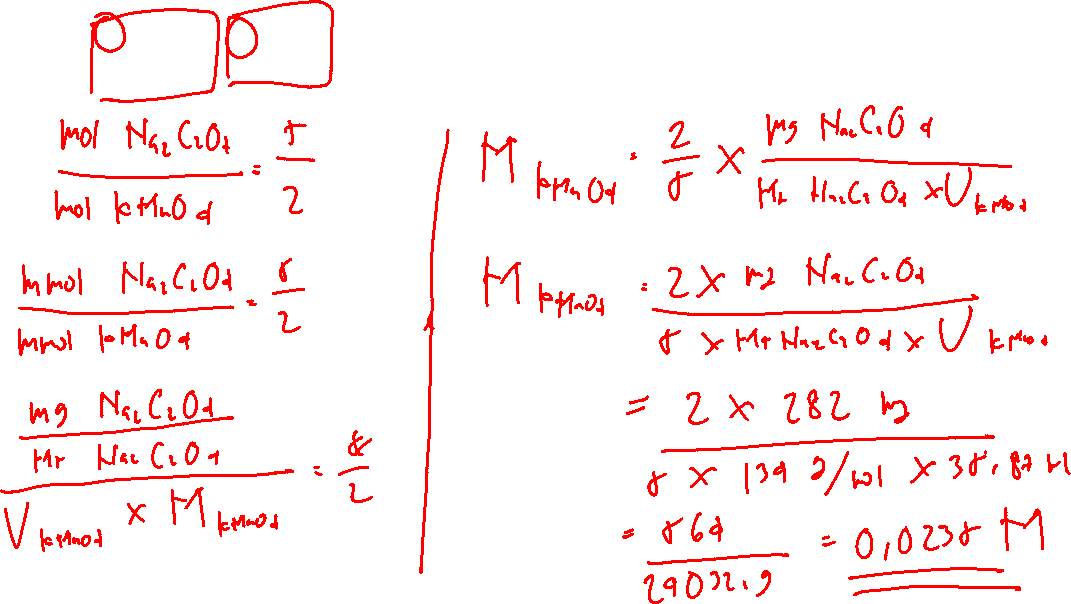 mol Na₂C₂O₄ / mol KMnO₄ = 5/2
mmol Na₂C₂O₄ / mmol KMnO₄ = 5/2
mg Na₂C₂O₄
Mr Na₂C₂O₄
V KMnO₄ × M KMnO₄ = 5/2
M KMnO₄ = 2/5 × mg Na₂C₂O₄ / Mr Na₂C₂O₄ × V KMnO₄
M KMnO₄ = 2 × mg Na₂C₂O₄ / 5 × Mr Na₂C₂O₄ × V KMnO₄
= 2 × 282 mg / 5 × 134 g/mol × 35,87 ml
= 564 / 24032,9 = 0,0235 M